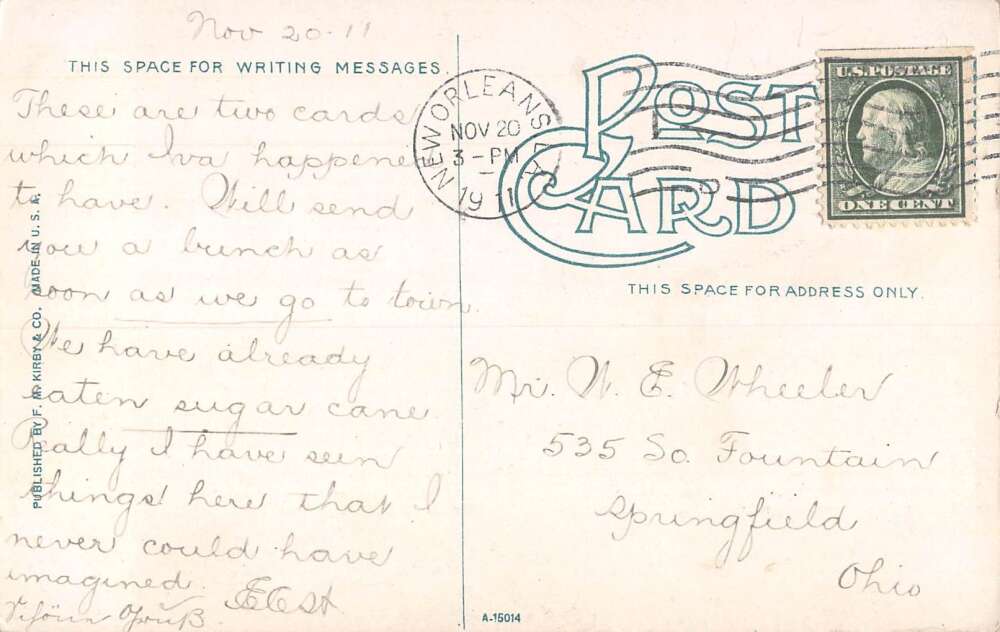 Nov 20-11
THIS SPACE FOR WRITING MESSAGES.
These are two cards
which Iva happene
to have. Will send
you a bunch as
soon as we go to town.
We have already
eaten sugar cane
Really I have seen
things here that I
never could have
imagined.
Schöne Gruß
PUBLISHED BY F. M. KIRBY & CO. MADE IN U. S. A.
NEW ORLEANS
NOV 20
3-PM
1911
POST
CARD
U.S. POSTAGE
ONE CENT
THIS SPACE FOR ADDRESS ONLY.
Mr. W. E. Wheeler
535 So. Fountain
Springfield
Ohio
A-15014